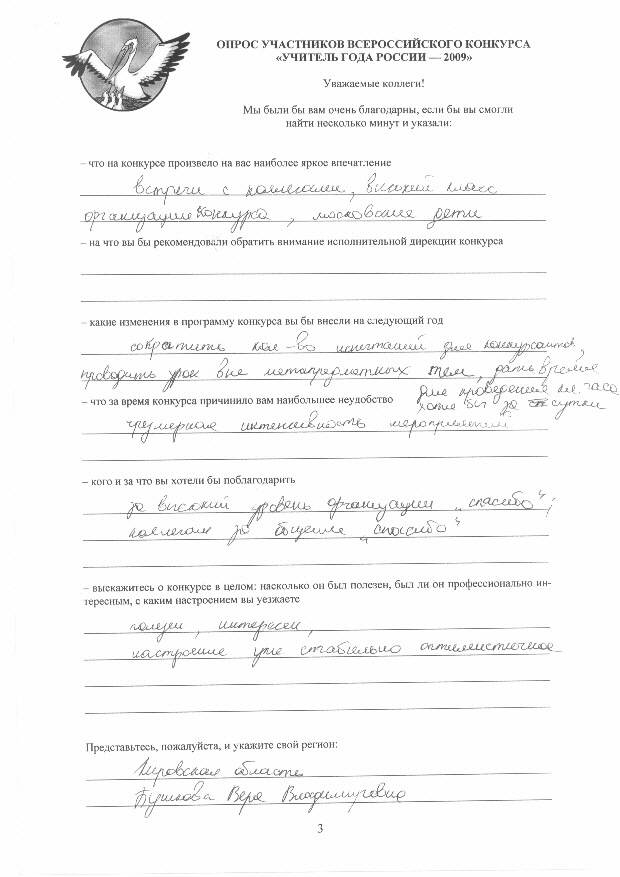 ОПРОС УЧАСТНИКОВ ВСЕРОССИЙСКОГО КОНКУРСА
«УЧИТЕЛЬ ГОДА РОССИИ — 2009»
Уважаемые коллеги!
Мы были бы вам очень благодарны, если бы вы смогли
найти несколько минут и указали:
– что на конкурсе произвело на вас наиболее яркое впечатление
встречи с коллегами, высокий класс
организации конкурса, московские дети
– на что вы бы рекомендовали обратить внимание исполнительной дирекции конкурса
– какие изменения в программу конкурса вы бы внесли на следующий год
сократить кол-во испытаний для конкурсантов,
проводить урок вне метапредметных тем, дать время
для проведения кл. часа
– что за время конкурса причинило вам наибольшее неудобство
хотя бы за сутки
чрезмерная интенсивность мероприятий
– кого и за что вы хотели бы поблагодарить
за высокий уровень организации „спасибо“;
коллегам за общение „спасибо“
– выскажитесь о конкурсе в целом: насколько он был полезен, был ли он профессионально ин-
тересным, с каким настроением вы уезжаете
полезен, интересен,
настроение уже стабильно оптимистичное
Представьтесь, пожалуйста, и укажите свой регион:
Кировская область
Вера Владимировна
3